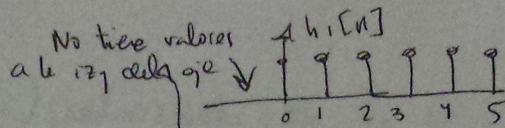 No tiene valores h₁[n]
a la izq del eje
0 1 2 3 4 5